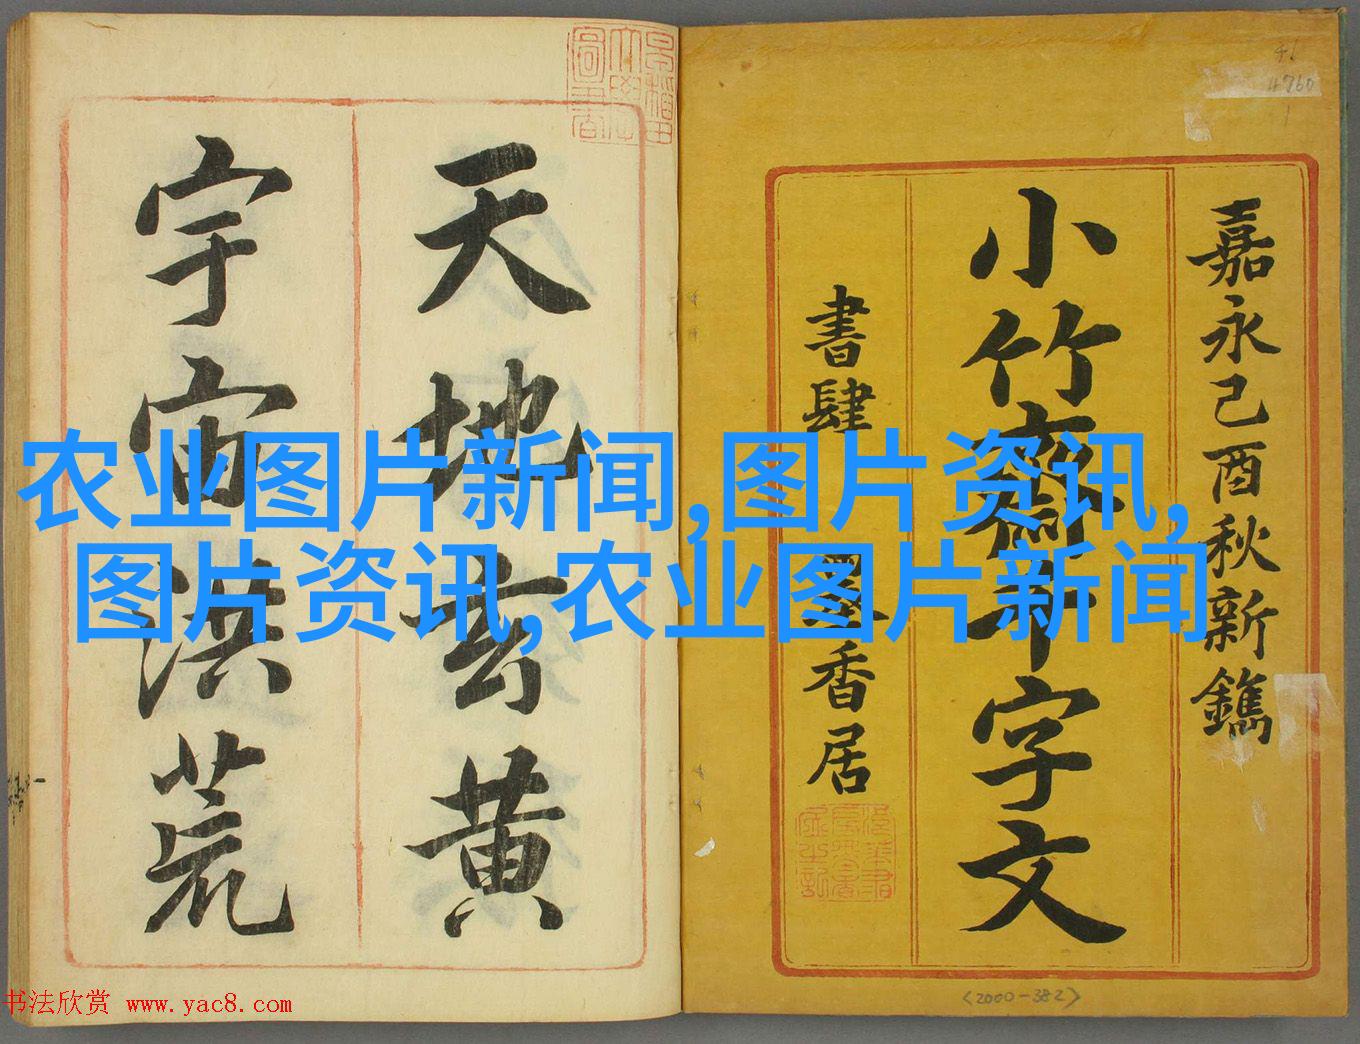 嘉永己酉秋新鐫
小竹齋千字文
書肆 墨香居
天地玄黄
宇宙洪荒
农业图片新闻,图片资讯,
图片资讯,农业图片新闻
46
4760
<2000-382>
书法欣赏 www.yac8.com